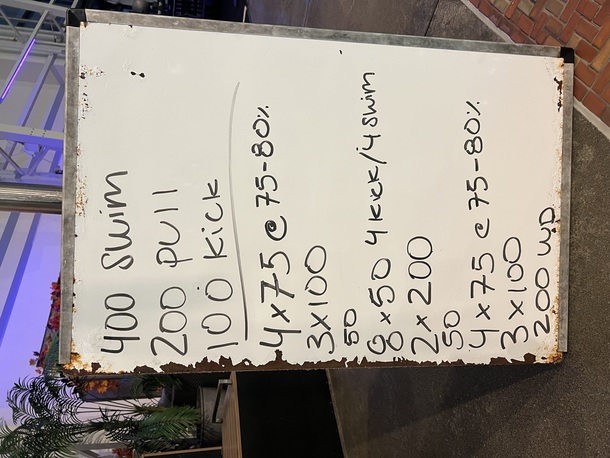 400 SWIM
200 PULL
100 KICK
4x75 @ 75-80%
3x100
50
8x50 4 KICK/4 SWIM
2x200
50
4x75 @ 75-80%
3x100
200 WD